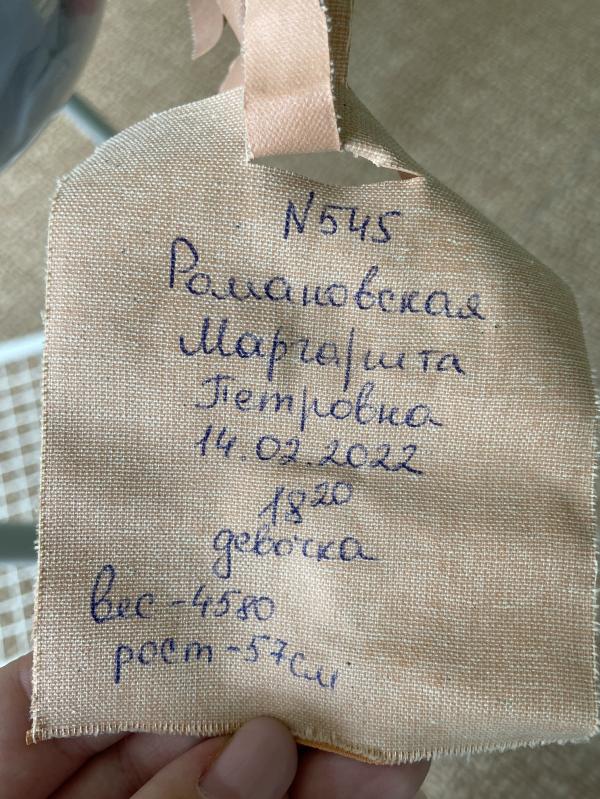 N545
Романовская
Маргарита
Петровна
14.02.2022
18 20
девочка
вес - 4580
рост - 57см